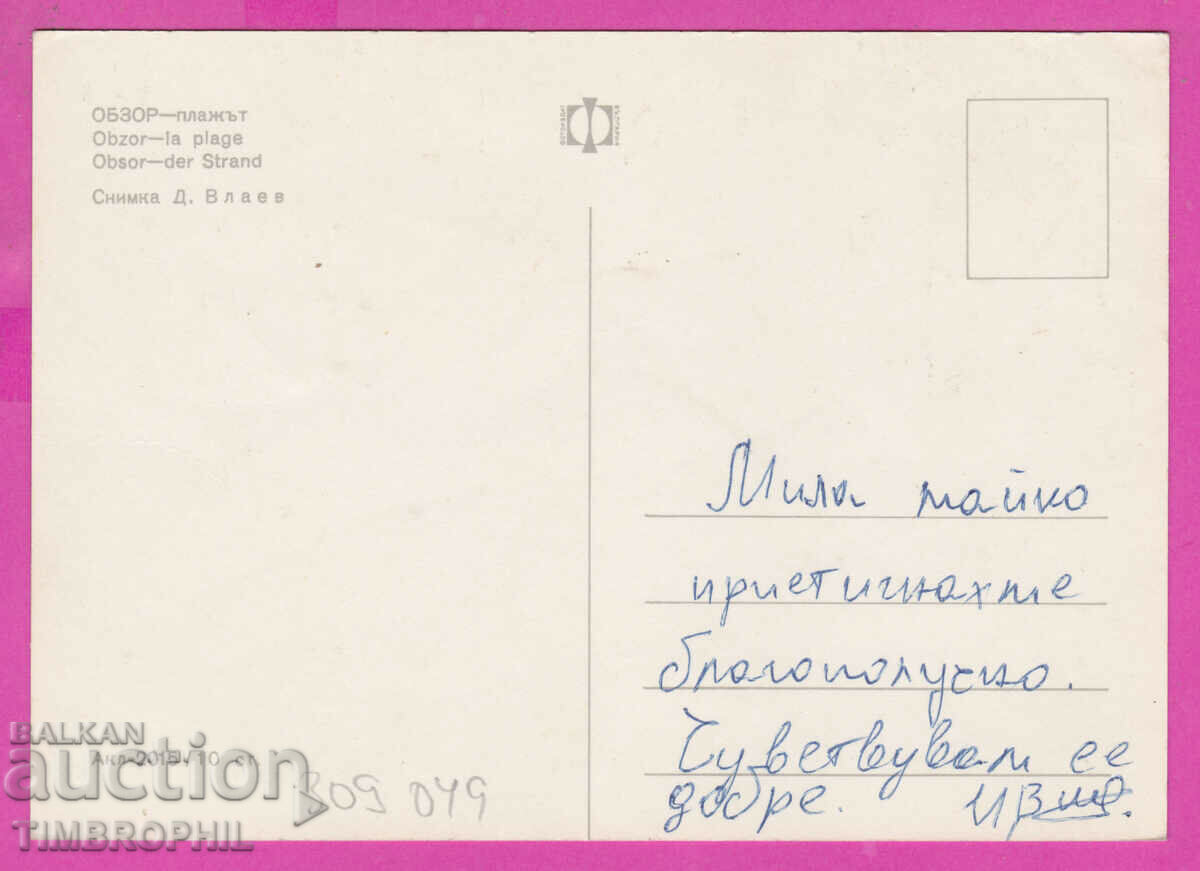 ОБЗОР—плажът
Obzor—la plage
Obsor—der Strand
Снимка Д. Влаев
Мила майко
приетигнахме
благополучно.
Чувствувам се
добре.
BALKAN
auction
TIMBROPHIL
Акл-2015 10 ст.
309 049